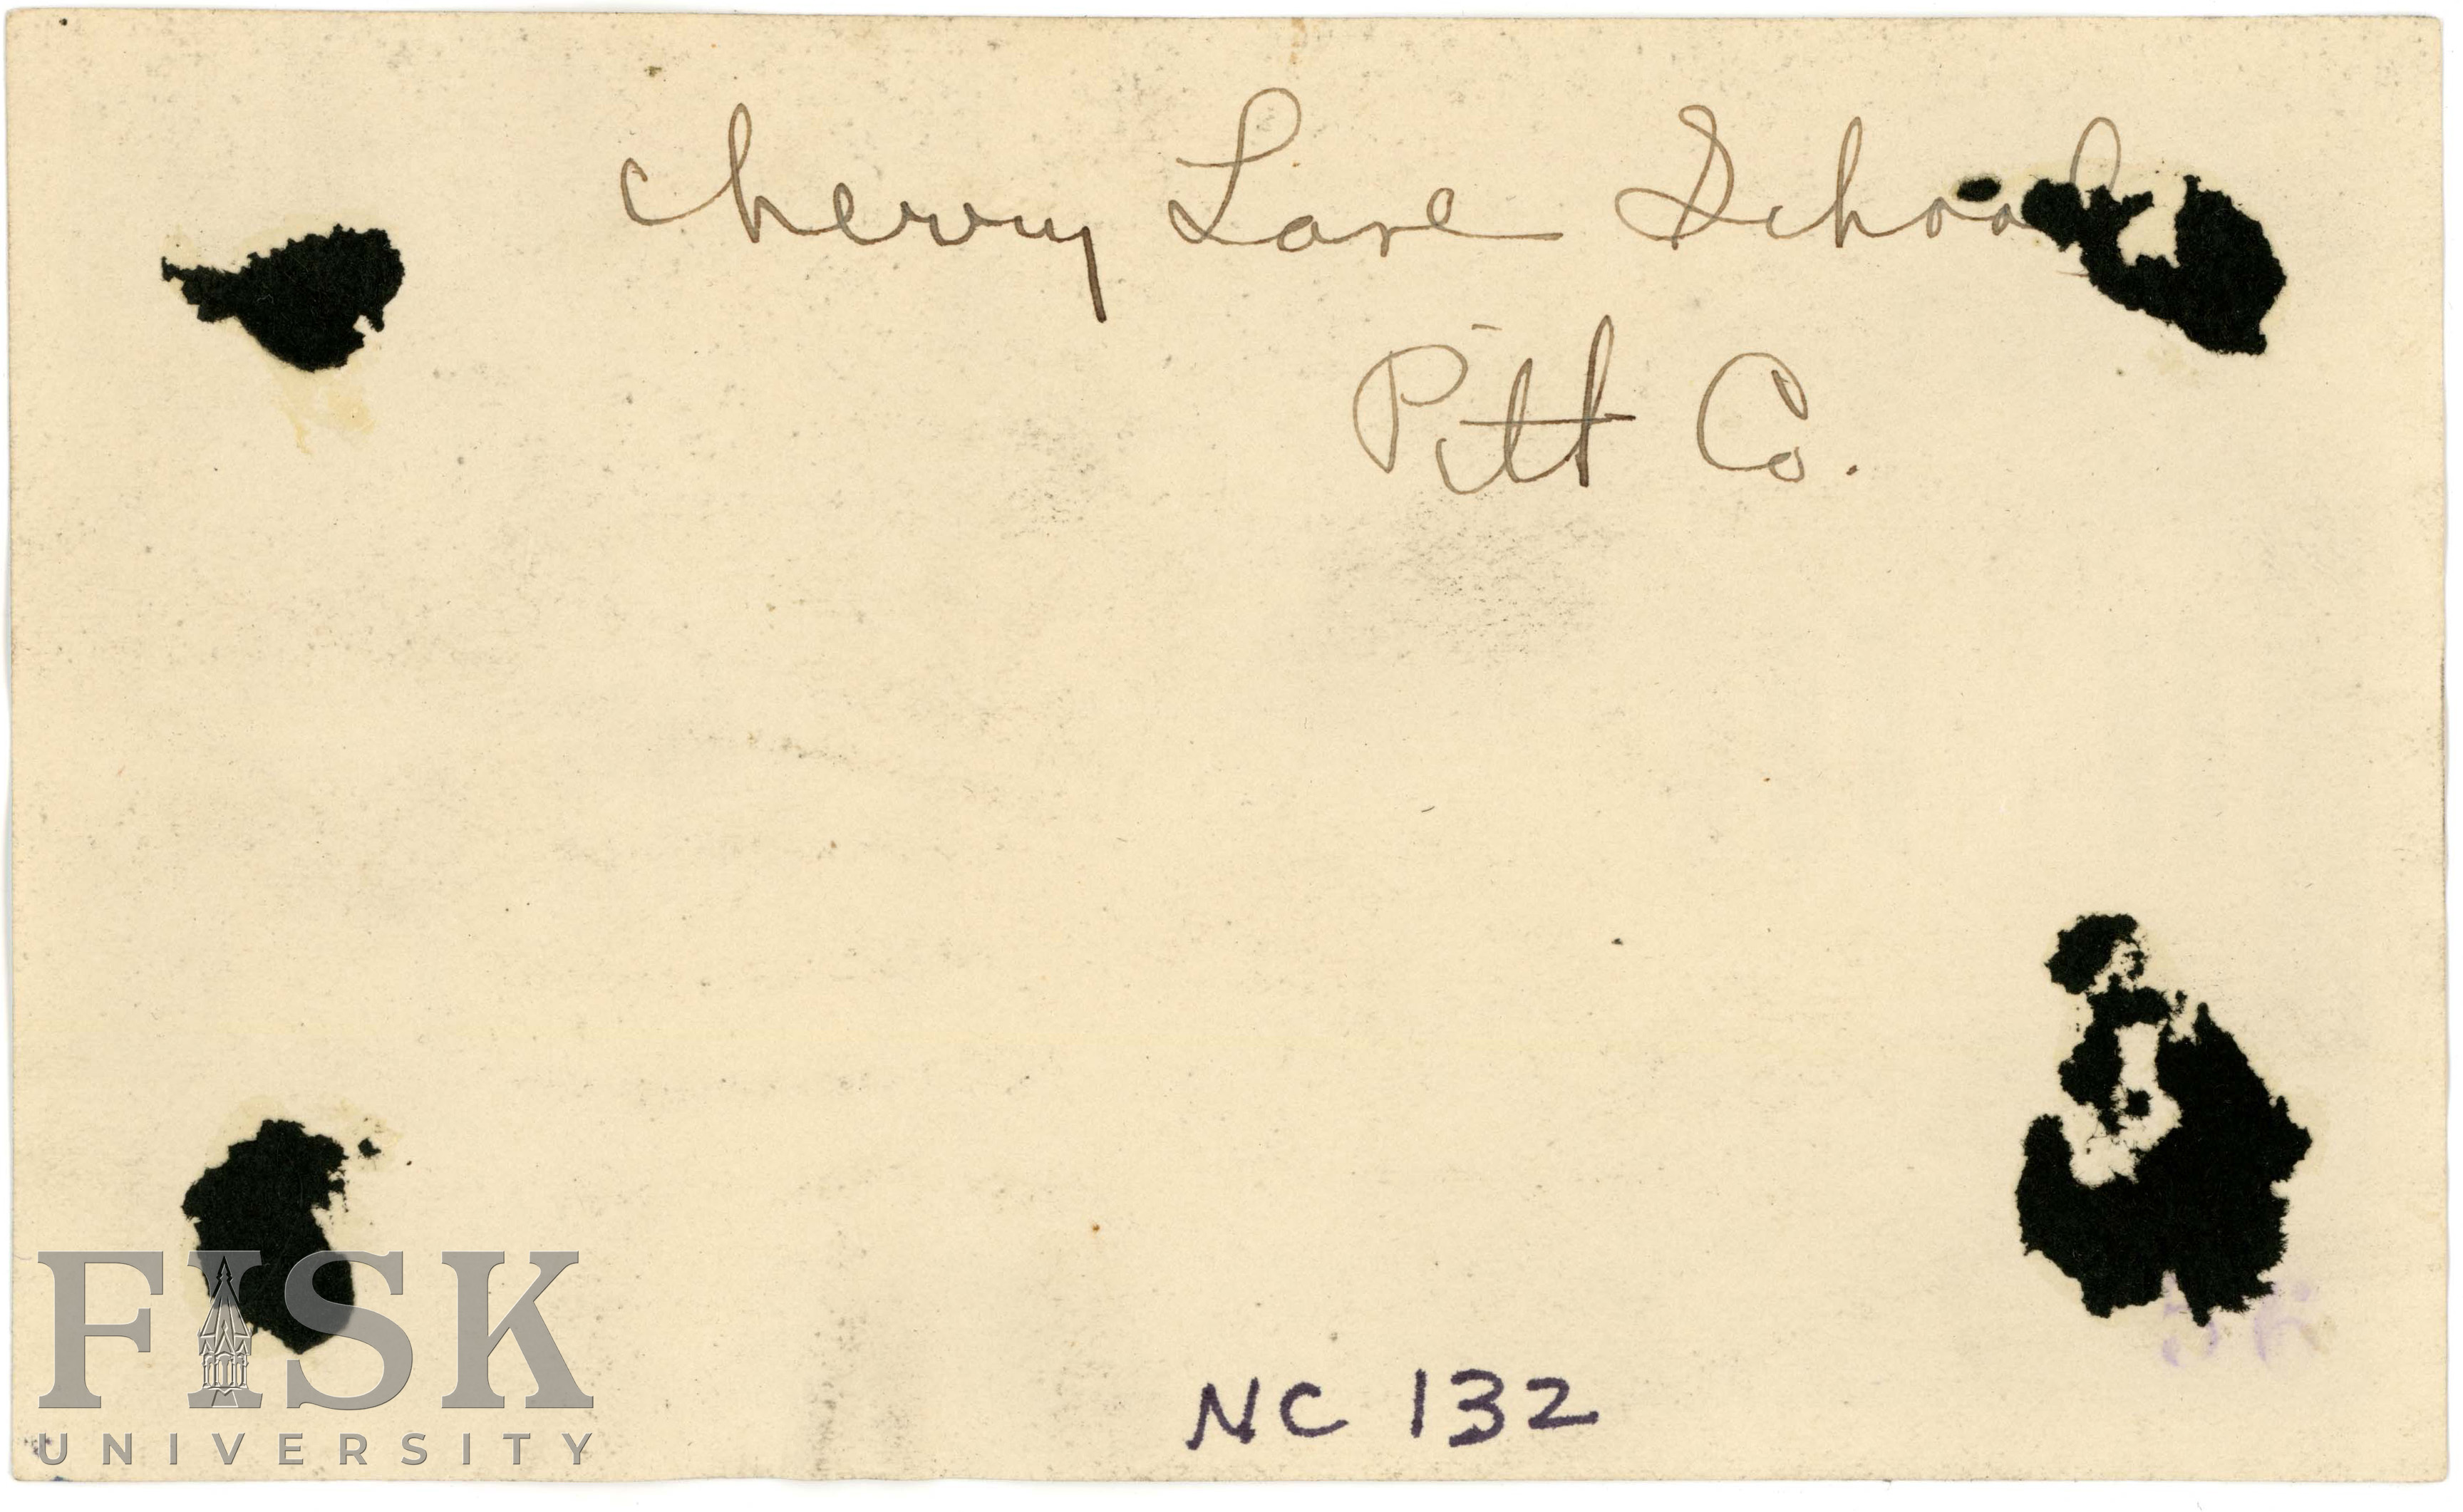 Cherry Lane School
Pitt Co.
NC 132
FISK
UNIVERSITY